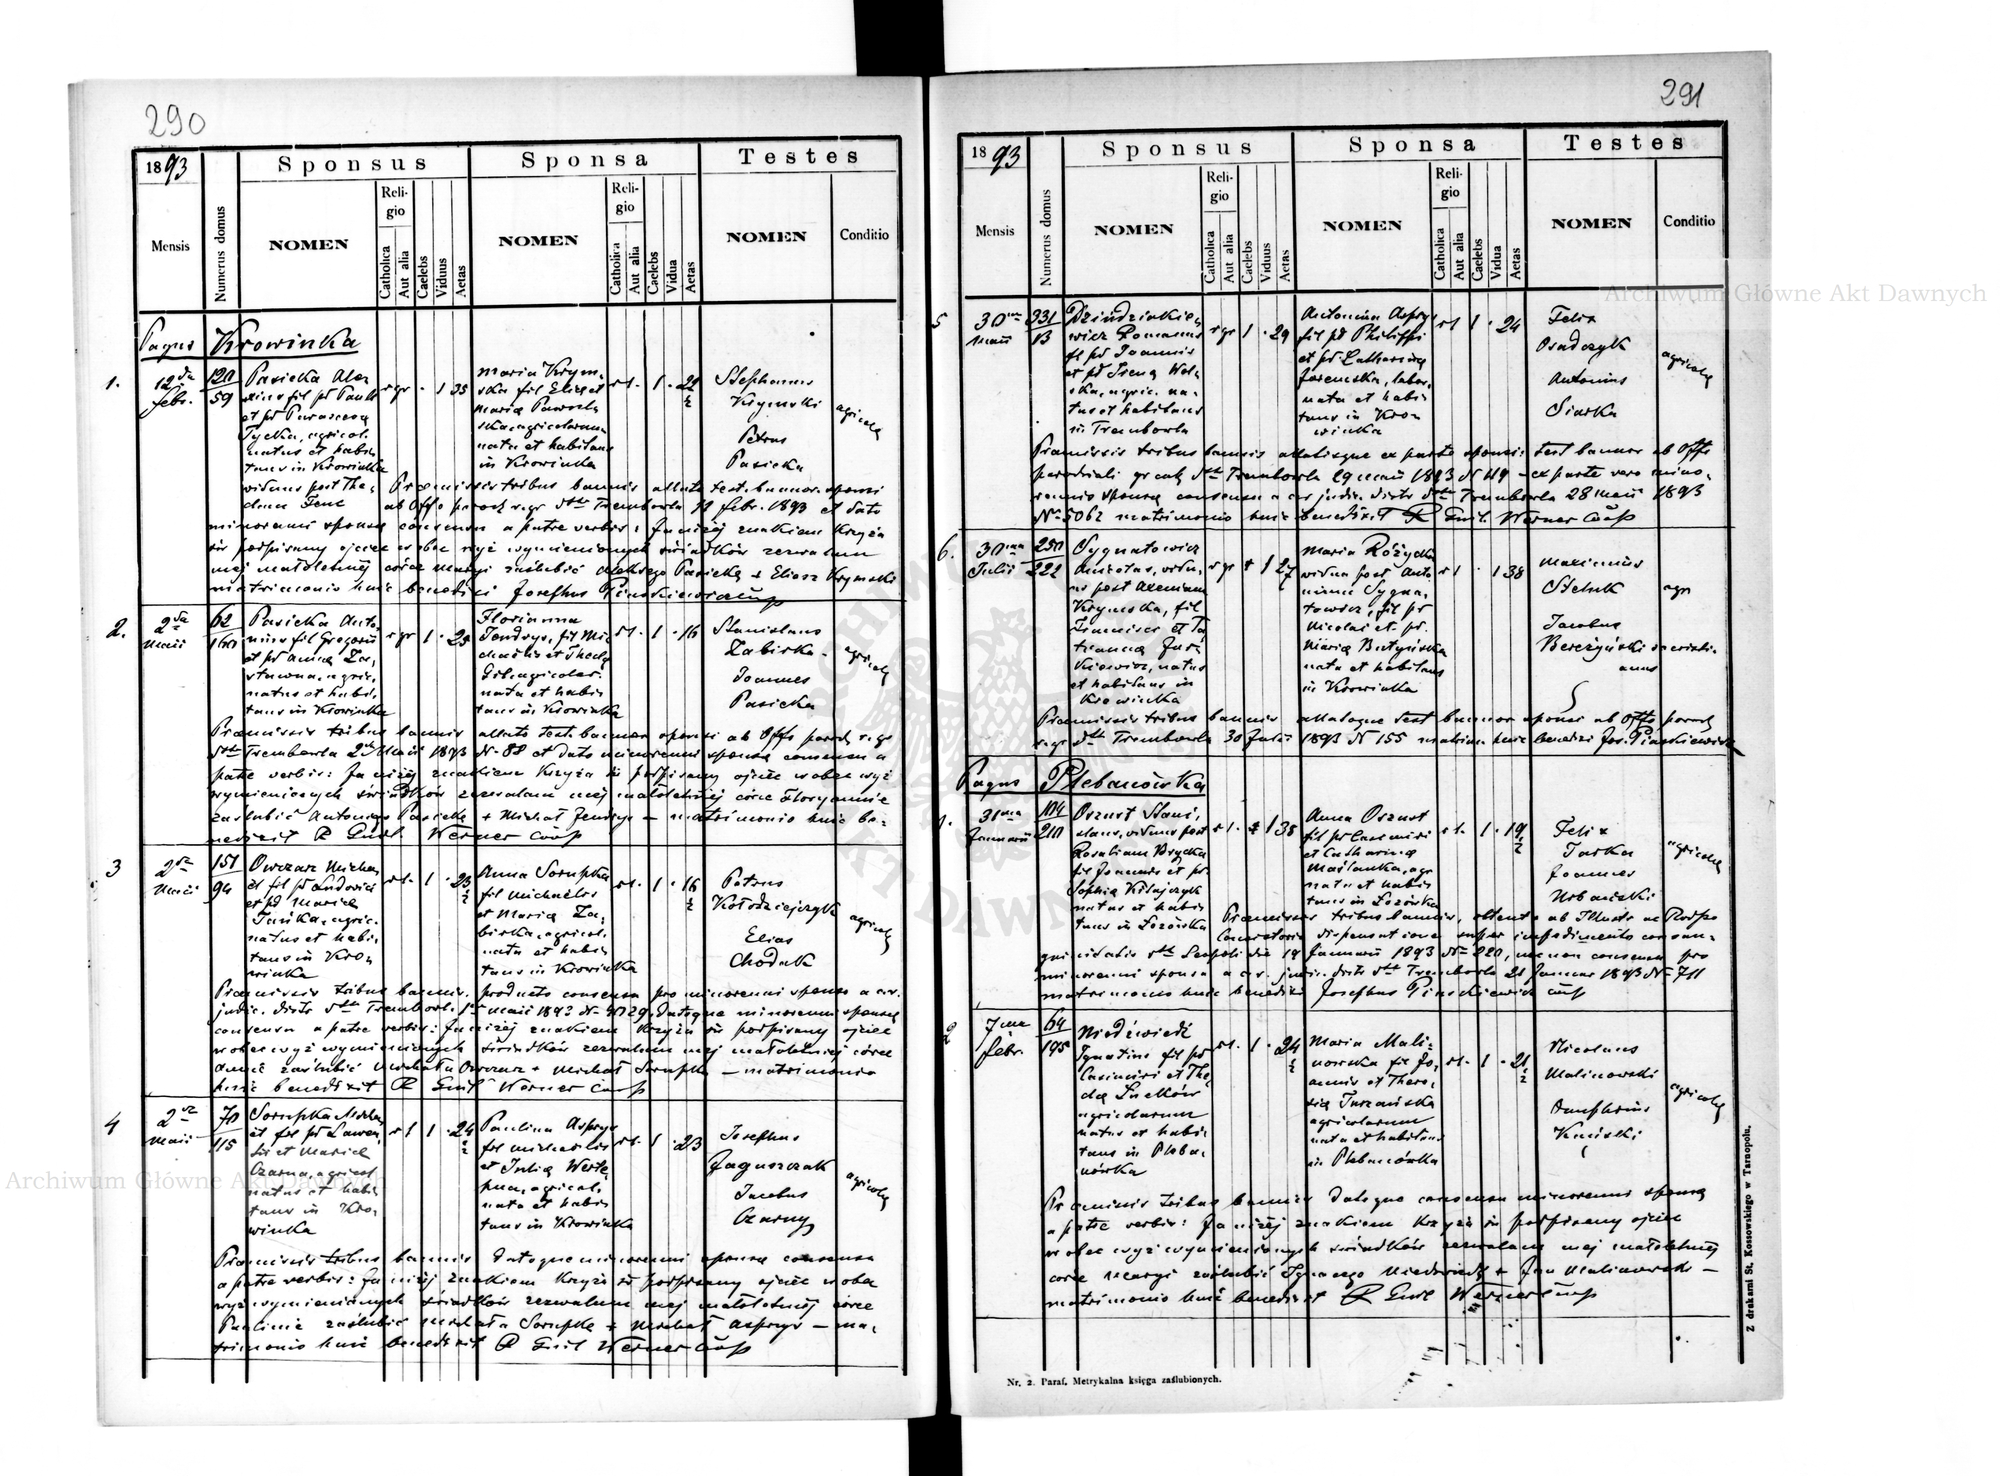 290
1893
Sponsus
Sponsa
Testes
Mensis
Numerus domus
NOMEN
Religio
Catholica
Aut alia
Caelebs
Viduus
Aetas
NOMEN
Religio
Catholica
Aut alia
Caelebs
Vidua
Aetas
NOMEN
Conditio
Pagus Krowinka
1.
12da
febr.
120
59
Pasieka Ale
fil pd Pauli
et pd Parasceva
Tycka, agricol.
natus et habi
tans in Krowinka
viduus post The
cla
rgr
1
35
Maria Krym
ska fil Eliae et
Maria
ska agricolarum
nata et habitans
in Krowinka
rl.
1
Stephanus
Krymski
Petrus
Pasieka
agricolae
Praemissis tribus bannis allato test. bannor. sponsi
ab Offo paroch r.gr dtto Trembowla febr. 1893 et dato
minorenni sponsae consensu a patre verbis: Ja niżej znakiem krzyża
św podpisany ojciec wobec wyż wymienionych świadków zezwalam
mej małoletniej córce Maryi zaślubić Pasiekę + Eliasz Krymski
matrimonio huic benedixi Josephus
2.
2da
Maii
62
160
Pasieka Anto
nius fil Gregorii
et pd Anna Za
stawna, agric.
natus et habi
tans in Krowinka
rgr
1
Florianna
Jendrys, fil Mi
chaelis et Thecla
agricolar.
nata et habi
tans in Krowinka
rl
1
16
Stanislaus
Zabirka
Joannes
Pasieka
agricolae
Praemissis tribus bannis allato test. bannor sponsi ab Offo paroch r.gr
dtto Trembowla 2da Maii 1893 N. 88 et dato minorenni sponsae consensu a
patre verbis: Ja niżej znakiem krzyża św podpisany ojciec wobec wyż
wymienionych świadków zezwalam mej małoletniej córce Floryannie
zaślubić Antoniego Pasiekę + Michał Jendrys — matrimonio huic be
nedixit R Guil. Werner Coop
3
2da
Maii
151
94
Owczar Micha
el fil pd Ludovici
et pd Maria
agric.
natus et habi
tans in Kro
winka
rl.
1
23
Anna Sorupka
fil Michaelis
et Maria Za
birka, agricol.
nata et habi
tans in Krowinka
rl.
1
16
Petrus
Kołodziejczyk
Elias
Chodak
agricolae
Praemissis tribus bannis, producto consensu pro minorenni sponso a c.r.
judic. distr dtto Trembowl. Maii 1893 datoque minorenni sponsae
consensu a patre verbis: Ja niżej znakiem krzyża św podpisany ojciec
wobec wyż wymienionych świadków zezwalam mej małoletniej córce
Annie zaślubić Michała Owczar + Michał Sorupka — matrimonio
huic benedixit R Guil Werner Coop
4
2da
Maii
70
115
Sorupka Micha
el fil pd Lauren
tii et Maria
Czarna, agricol
natus et habi
tans in Kro
winka
rl
1
24
Paulina Asprys
fil Michaelis
et Julia
agricol.
nata et habi
tans in Krowinka
rl.
1
23
Josephus
Jaguszczak
Jacobus
Czarny
agricolae
Praemissis tribus bannis datoque minorenni sponsae consensu
a patre verbis: Ja niżej znakiem krzyża św podpisany ojciec wobec
wyż wymienionych świadków zezwalam mej małoletniej córce
Paulinie zaślubić Michała Sorupkę + Michał Asprys — ma
trimonio huic benedixit R Guil Werner Coop
291
1893
Sponsus
Sponsa
Testes
Mensis
Numerus domus
NOMEN
Religio
Catholica
Aut alia
Caelebs
Viduus
Aetas
NOMEN
Religio
Catholica
Aut alia
Caelebs
Vidua
Aetas
NOMEN
Conditio
5
30ma
Maii
331
13
Dziudziakie
wicz Romanus
fil pd Joannis
et pd Irena Wol
ska, agric. na
tus et habitans
in Trembowla
rgr
1
29
Antonina Aspry
fil pd Philippi
et pd Catharina
Jaremska, labor.
nata et habi
tans in Kro
winka
rl
1
24
Felix
Osadczyk
Antonius
Siarka
agricolae
Praemissis tribus bannis allatisque ex parte sponsi: test bannor ab Offo
parochiali gr cath dtto Trembowla 29 Maii 1893 N 119 — ex parte vero mino
rennis sponsae consensu a c.r judic. distr dtto Trembowla 28 Maii 1893
N. 5062 matrimonio huic benedixit R Guil. Werner Coop
6.
30ma
Julii
250
222
Sygnatowicz
Anicetus, vidu
us post Axeniam
Krymska, fil
Francisci et Ta
tianna Jurkiewicz, natus
et habitans in
Krowinka
rgr
1
27
Maria Różycka
vidua post Anto
nium Sygna
towicz, fil pd
Nicolai et pd.
Maria Butyńska
nata et habitans
in Krowinka
rl
1
38
Maximus
Steluk
agr
Jacobus
Bereżyński
Praemissis tribus bannis allatoque test bannor sponsi ab Offo paroch
r.gr dtto Trembowla 30 Julii 1893 N 155 matrim huic benedixi Jos.
Pagus Plebanówka
1.
31ma
Januarii
104
210
Oszust Stani
slaus, viduus post
Rosaliam Brycka
fil Joannis et pd
Sophia Kisajczyk
natus et habi
tans in Łozówka
rl.
1
38
Anna Oszust
fil pd Casimiri
et Catharina
Maślanka, agr
nata et habi
tans in Łozówka
rl.
1
19
Felix
Jarka
Joannes
Urbański
agricolae
Praemissis tribus bannis, obtenta ab Illustr ac Rndsso
Consistorio dispensatione super impedimento consan
guinitatis dtto Leopoli die 19 Januarii 1893 N. 220, necnon consensu pro
minorenni sponsa a c.r. judic. distr dtto Trembowla 21 Januar 1893 N. 711
matrimonio huic benedixi Josephus Coop
2
7ma
febr.
64
195
Niedźwiedź
Ignatius fil pd
Casimiri et The
cla
agricolarum
natus et habi
tans in Pleba
nówka
rl.
1
24
Maria Mali
nowska fil Jo
annis et There
sia Turzańska
agricolarum
nata et habitans
in Plebanówka
rl.
1
21
Nicolaus
Malinowski
Onuphrius
agricolae
Praemissis tribus bannis datoque consensu minorenni sponsae
a patre verbis: Ja niżej znakiem krzyża św podpisany ojciec
wobec wyż wymienionych świadków zezwalam mej małoletniej
córce Maryi zaślubić Ignacego Niedźwiedź + Jan Malinowski —
matrimonio huic benedixit R Guil Werner Coop
Nr. 2. Paraf. Metrykalna księga zaślubionych.
Z drukarni St. Kossowskiego w Tarnopolu.
Archiwum Główne Akt Dawnych
Archiwum Główne Akt Dawnych